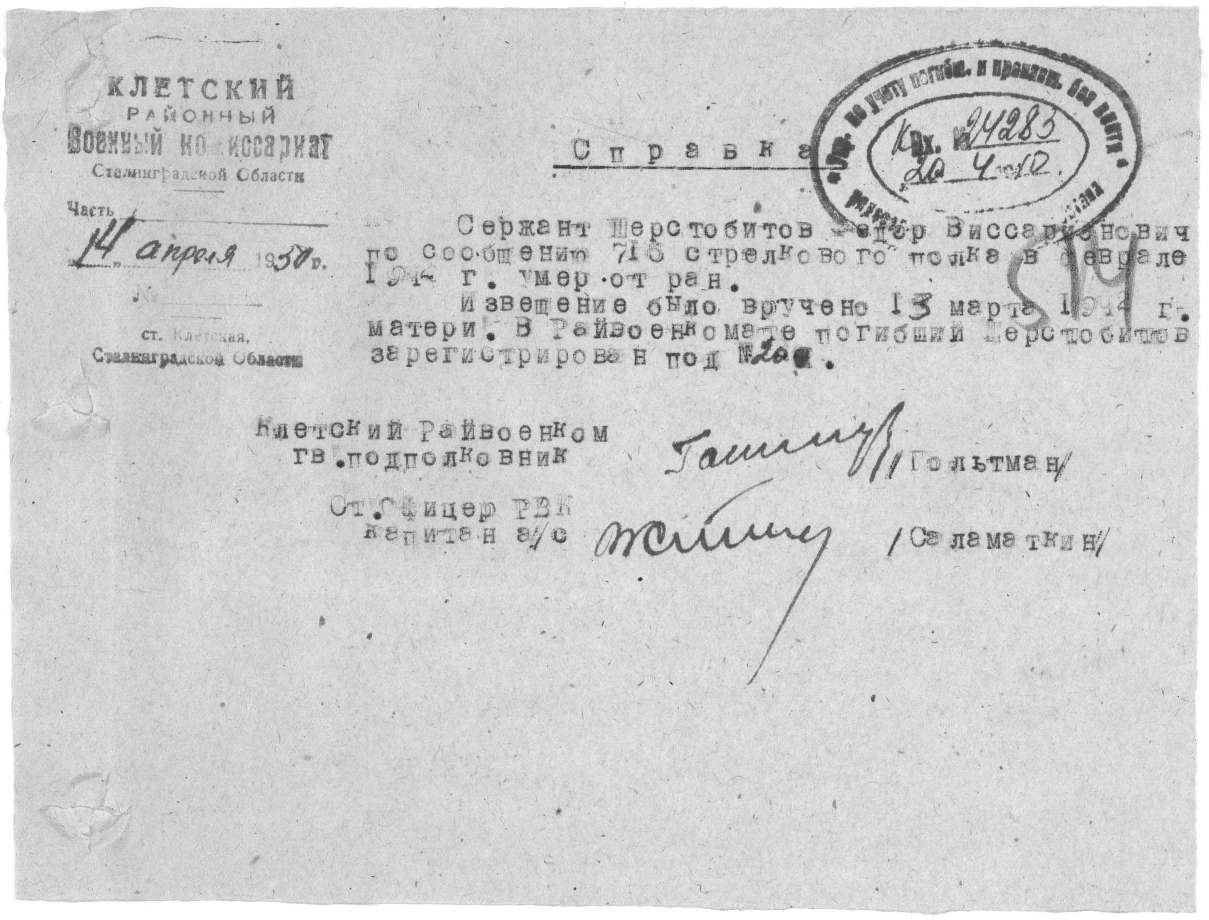 КЛЕТСКИЙ
РАЙОННЫЙ
Военный комиссариат
Сталинградской Области
Часть
14 апреля 1950 г.
№
ст. Клетская,
Сталинградской Области
Упр. по учету погибш. и пропавш. без вести
Вх. № 24283
20 4
Справка
514
Сержант Шерстобитов Федор Виссарионович
по сообщению стрелкового полка в феврале
г. умер от ран.
Извещение было вручено 13 марта г.
матери. В Райвоенкомате погибший Шерстобитов
зарегистрирован под №
Клетский Райвоенком
гв.подполковник /Гольтман/
Ст.Офицер РВК
капитан а/с /Саламаткин/